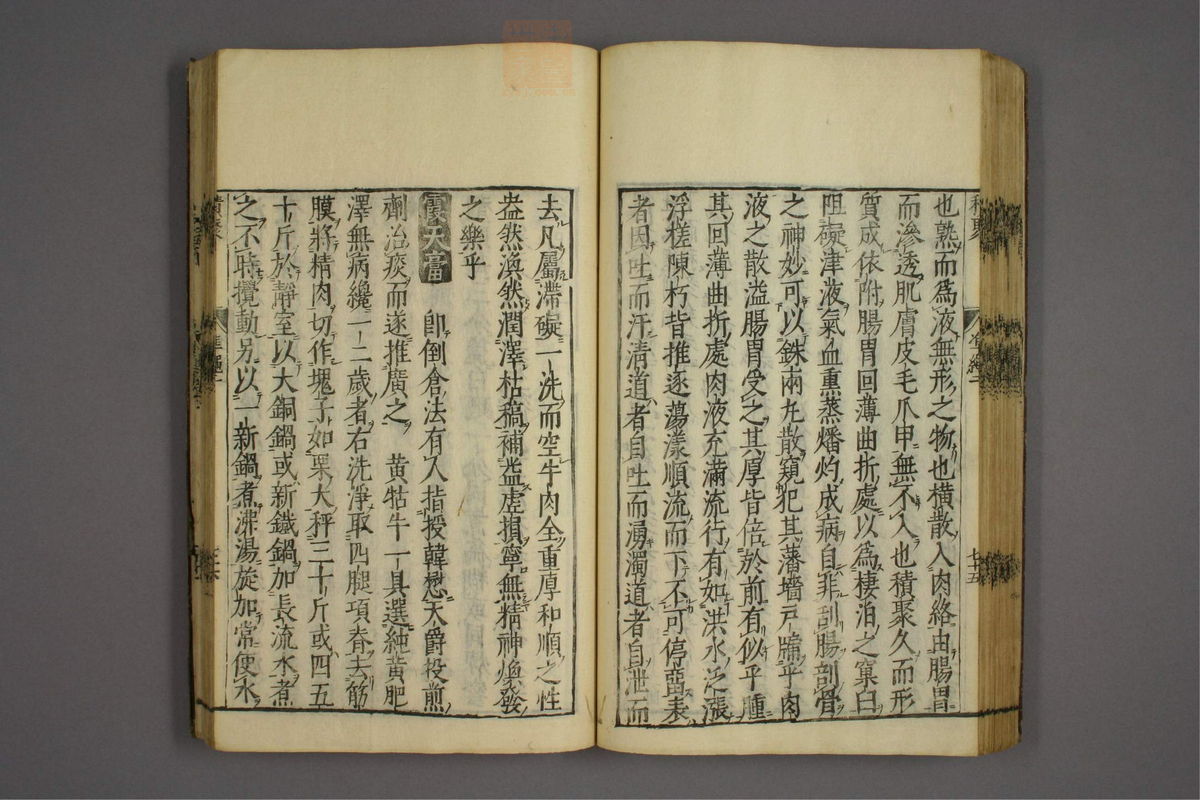 也熟而爲液無形之物也橫散入肉絡由腸胃
而滲透肌膚皮毛爪甲無不入也積聚久而形
質成依附腸胃回薄曲折處以爲棲泊之窠臼
阻礙津液氣血熏蒸燔灼成病自非刮腸剖骨
之神妙可以銖兩丸散窺犯其藩墻戶牖乎肉
液之散溢腸胃受之其厚皆倍於前有似乎腫
其回薄曲折處肉液充滿流行有如洪水泛漲
浮槎陳朽皆推逐蕩漾順流而下不可停畱表
者因吐而汗清道者自吐而湧濁道者自泄而
去凡屬滯礙一洗而空牛肉全重厚和順之性
盎然渙然潤澤枯稿補益虛損寧無精神煥發
之樂乎
霞天膏 即倒倉法有人指授韓懋天爵投煎
劑治痰而遂推廣之 黃牯牛一具選純黃肥
澤無病纔一二歲者右洗淨取四腿項脊去筋
膜將精肉切作塊子如栗大秤三十斤或四五
十斤於靜室以大銅鍋或新鐵鍋加長流水煮
之不時攪動另以一新鍋煮沸湯旋加常使水
七十五